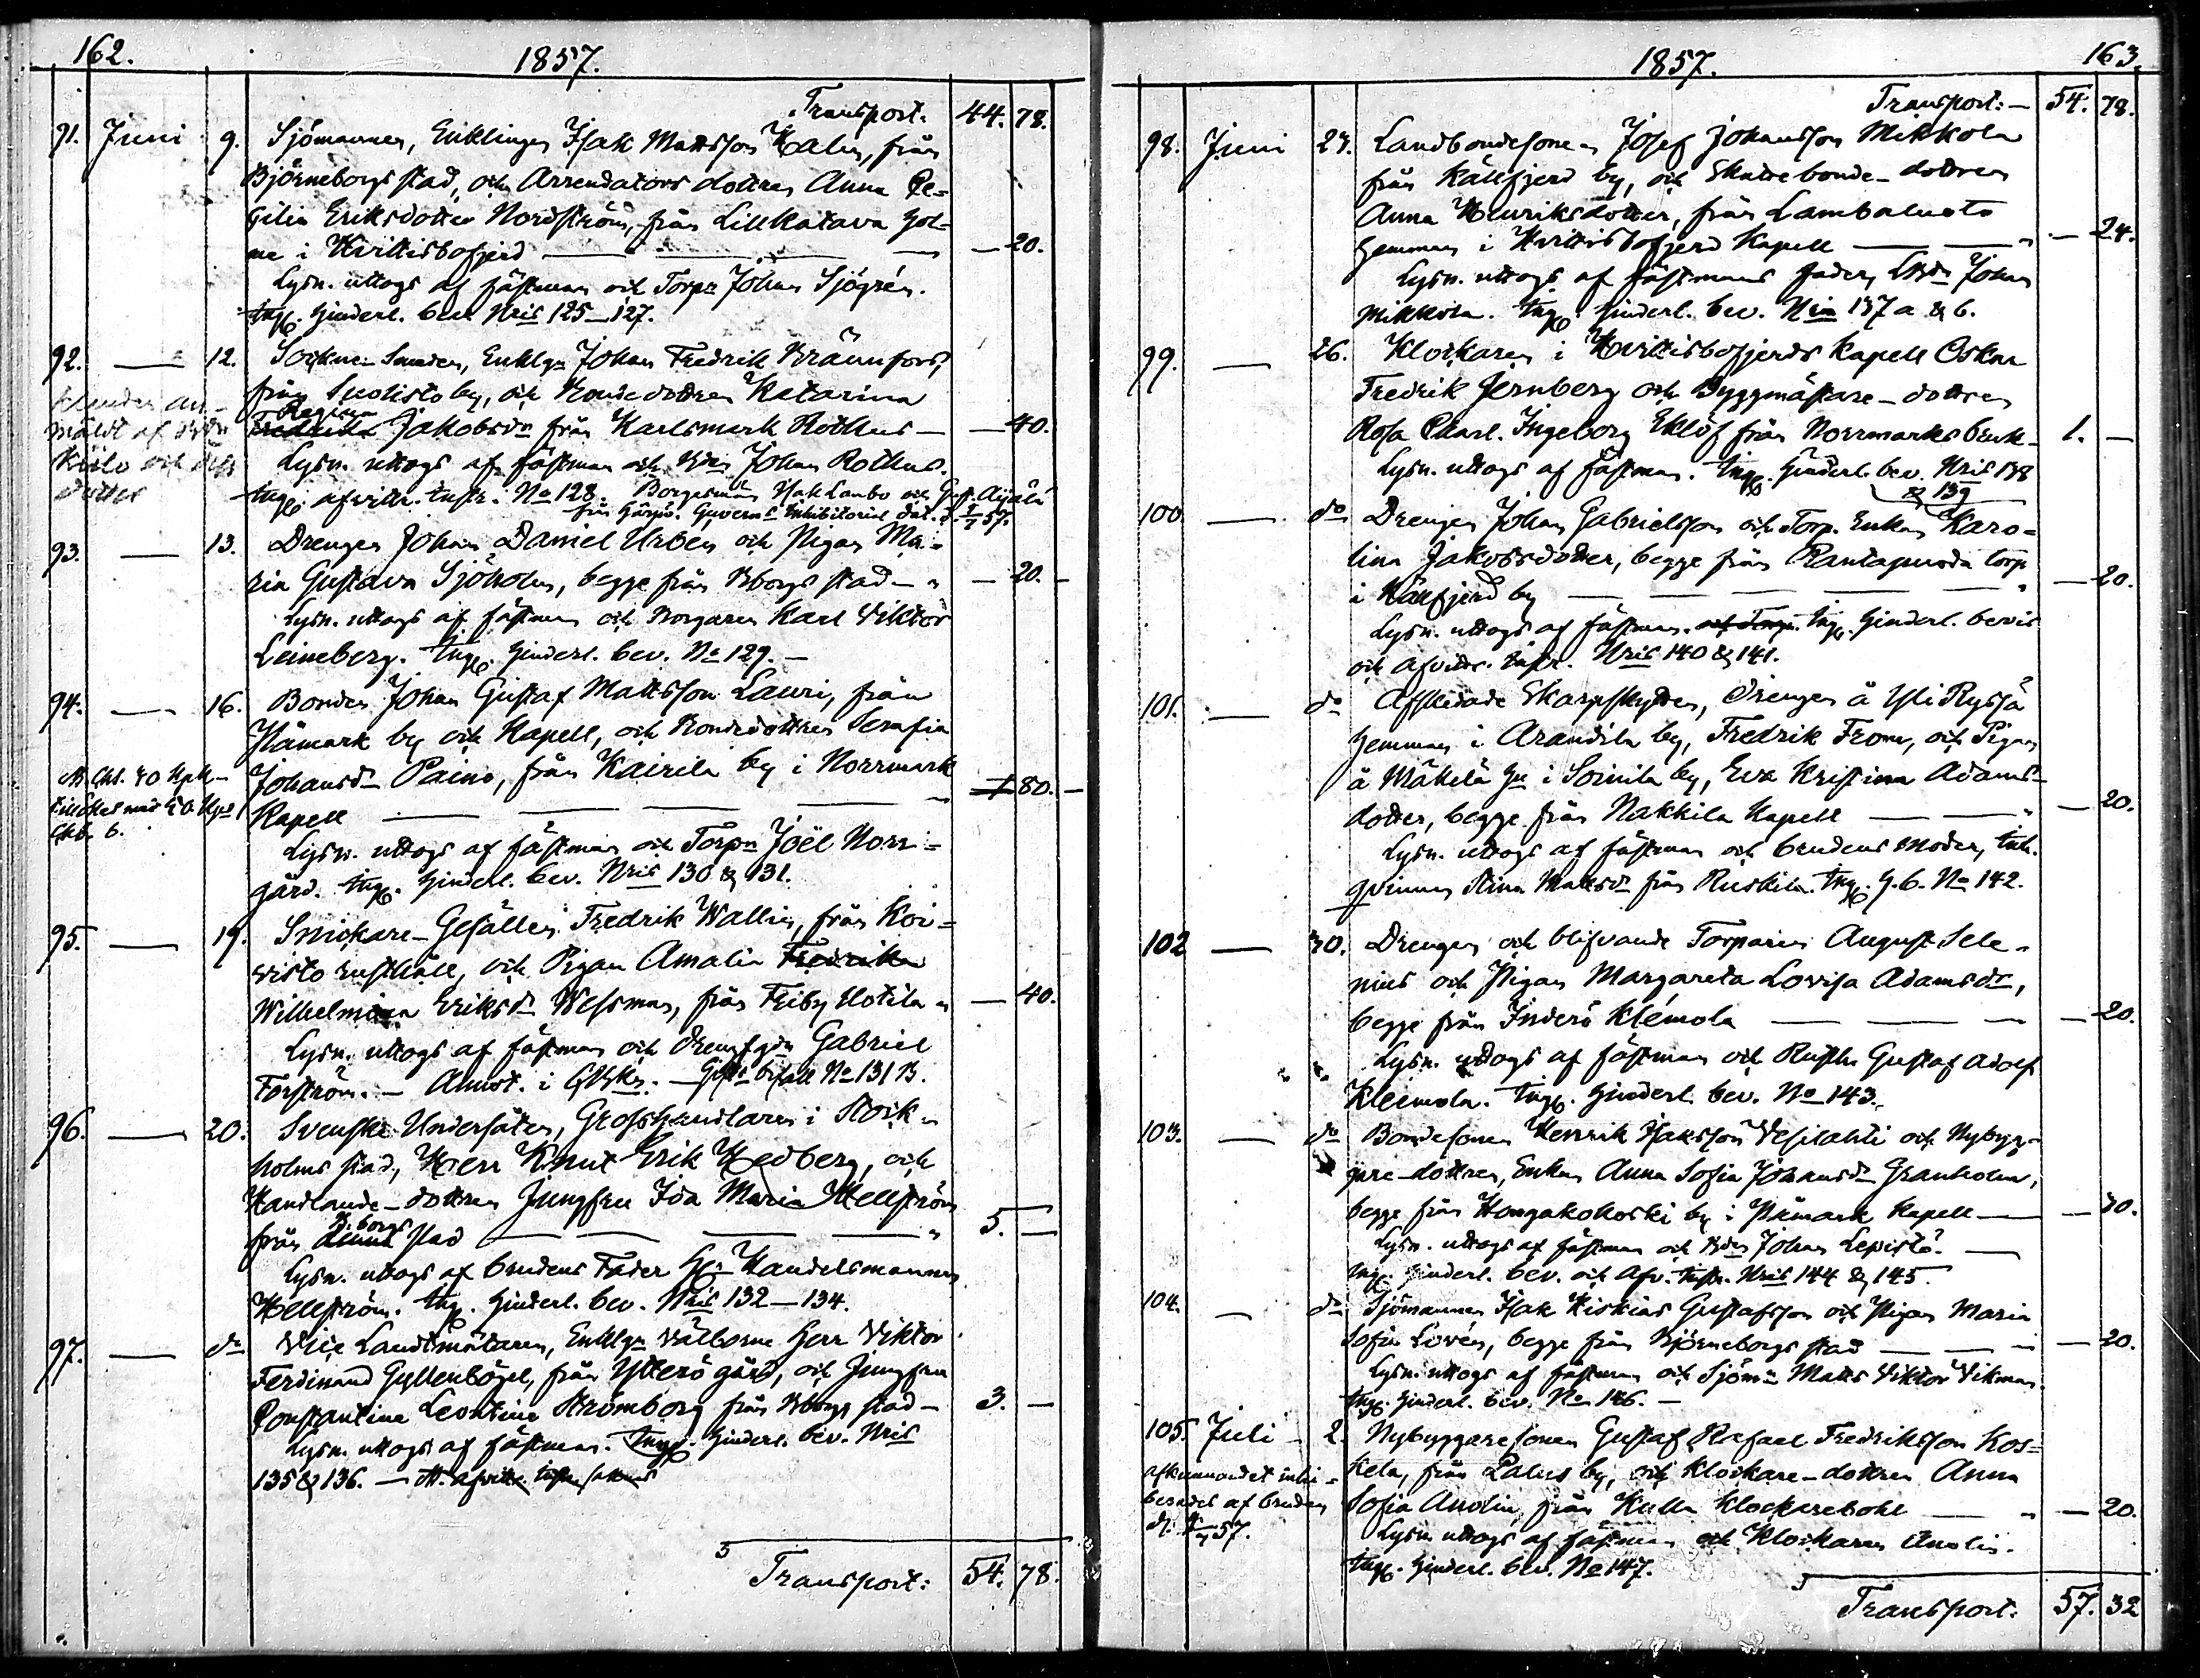 162.
1857.
Transport. 44. 78.
91. Juni 9. Sjömannen, Enklingen Isak Mattsson Kalén, från
Björneborgs stad, och Arrendators dottren Anna Ce=
cilia Eriksdotter Nordström, från Lillkatava hol=
me i Hvittisbofjerd — — — — 20.
Lysn. uttogs af fästman och Torpn Johan Sjögrén.
Ingg. hinderl. bev. Nris 125—127.
92. — 12. Sockne-Smeden, Enklgn Johan Fredrik Brännfors,
från Suosisto by, och Bondedottren Katarina
Regina
Fredrika Jakobsdr från Karlsmark Rothus — — 40.
Lysn. uttogs af fästman och Bdn Johan Rothus.
Ingg. afvittr. instr. No 128. Borgesmän Isak Laubo och Gust. Äijälä
från Guverns Inhibitorial dat. d. 57.
93. — 13. Drengen Johan Daniel Urbén och Pigan Ma=
ria Gustava Sjöholm, begge från Bborgs stad — — 20. —
Lysn. uttogs af fästman och Borgaren Karl Viktor
Leineberg. Ingg. hinderl. bev. No 129. —
94. — 16. Bonden Johan Gustaf Mattsson Lauri, från
Påmark by och Kapell, och Bondedottren Serafia
Johansdr Paino, från Kairila by i Norrmark
Kapell — — — 80. —
Lysn. uttogs af fästman och Torpn Joël Norr=
gård. Ingg. hinderl. bev. Nris 130 & 131.
95. — 19. Snickare-Gesällen Fredrik Wallin, från Koi=
visto rusthåll, och Pigan Amalia Fredrika
Wilhelmina Eriksdr Wessman, från Friby Hotila — 40.
Lysn. uttogs af fästman och Drengfgdn Gabriel
Forström. — Annot. i — No 131 B.
96. — 20. Svenske Undersåten, Grosshandlaren i Stock=
holms stad, Herr Knut Erik Hedberg, och
Handlande-dottren Jungfru Ida Maria Hellström
B:borgs
från stad — — — 5. —
Lysn. uttogs af brudens Fader Hr Handelsmannen
Hellström. Ingg. hinderl. bev. Nris 132—134.
97. — do Vice Landtmätaren, Enklgn Välborne Herr Viktor
Ferdinand Gyllenbögel, från Ytterö gård, och Jungfru
Constantina Leontina Strömborg från Bborgs stad — 3. —
Lysn. uttogs af fästman. Ingg. hinderl. bev. Nris
135 & 136. —
Transport: 54. 78.
1857.
163.
Transport: — 54. 78.
98. Juni 23. Landbondesonen Josef Johansson Mikkola
från Källfjerd by, och Skattebonde-dottren
Anna Henriksdotter, från Lambaluoto
hemman i Hvittisbofjerd Kapell — — — 24.
Lysn. uttogs af fästmans fader, LBdn Johan
Mikkola. Ingg. hinderl. bev. Nris 137 a & b.
99. — 26. Klockaren i Hvittisbofjerds Kapell Oskar
Fredrik Jernberg och Byggmästare-dottren
Rosa Charl. Ingeborg Eklöf från Norrmarks bruk — 1. —
Lysn. uttogs af fästman. Ingg. hinderl. bev. Nris 138
& 139
100. — do Drengen Johan Gabrielsson och Torp. Enkan Karo=
lina Jakobsdotter, begge från Rantapuoda torp
i Källfjerd by — — — — 20.
Lysn. uttogs af fästman. Ingg. hinderl. bevis
och afvittr. instr. Nris 140 & 141.
101. — do Afskedade Skarpskytten, Drengen å Yli Ryssä
hemman i Arandila by, Fredrik From, och Pigan
å Mäkelä hn i Soinila by, Eva Kristina Adams=
dotter, begge från Nakkila Kapell — — 20.
Lysn. uttogs af fästman och brudens moder, Inh.
qvinnan Stina Mattsdr från Ruskila. Ingg. h.b. No 142.
102 — 30. Drengen och blifvande Torparen August Sele=
nius och Pigan Margareta Lovisa Adamsdr,
begge från Inderö Klemola — — — 20.
Lysn. uttogs af fästman och Rusth. Gustaf Adolf
Kleimola. Ingg. hinderl. bev. No 143.
103. — do Bondesonen Henrik Isaksson Vesilahti och Nybyg=
gare-dottren, Enkan Anna Sofia Johansdr Granholm,
begge från Hongakohoski by i Påmark Kapell — — 30.
Lysn. uttogs af fästman och Bdn Johan Lepistö. —
Ingg. hinderl. bev. och Afv. Instr. Nris 144 & 145.
104. — do Sjömannen Isak Hiskias Gustafsson och Pigan Maria
Sofia Lovén, begge från Björneborgs stad — — — 20.
Lysn. uttogs af fästman och Sjömn Matts Viktor Vikman.
Ingg. hinderl. bev. No 146. —
105. Juli 2. Nybyggaresonen Gustaf Rafael Fredriksson Kos=
kela, från Palus by, och Klockare-dottren Anna
Sofia Anolin, från Kulla Klockarebohl — — 20.
Lysn. uttogs af fästman och Klockaren Anolin.
Ingg. hinderl. bev. No 147.
Transport: 57. 32